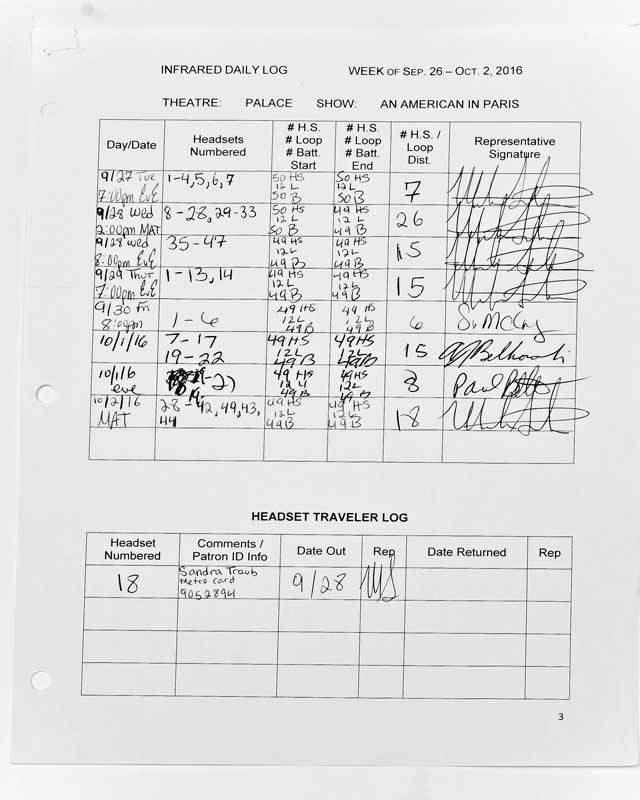 INFRARED DAILY LOG WEEK OF SEP. 26 – OCT. 2, 2016
THEATRE: PALACE SHOW: AN AMERICAN IN PARIS
Day/Date Headsets Numbered # H.S. # Loop # Batt. Start # H.S. # Loop # Batt. End # H.S. / Loop Dist. Representative Signature
9/27 Tue 7:00pm EvE 1-4,5,6,7 50 HS 12 L 50 B 50 HS 12 L 50 B 7
9/28 Wed 2:00pm MAT 8-28,29-33 50 HS 12 L 50 B 49 HS 12 L 49 B 26
9/28 Wed 8:00pm EvE 35-47 49 HS 12 L 49 B 49 HS 12 L 49 B 15
9/29 Thur 7:00pm EvE 1-13,14 49 HS 12 L 49 B 49 HS 12 L 49 B 15
9/30 Fri 8:00pm 1-6 49 HS 12 L 49 B 49 HS 12 L 49 B 6
10/1/16 7-17 19-22 49 HS 12 L 49 B 49 HS 12 L 49 B 15
10/1/16 eve 49 HS 12 L 49 B 49 HS 12 L 49 B 8 Paul
10/2/16 MAT 28-42,49,43,44 49 HS 12 L 49 B 49 HS 12 L 49 B 18
HEADSET TRAVELER LOG
Headset Numbered Comments / Patron ID Info Date Out Rep Date Returned Rep
18 Sandra Traub Metro Card 9052894 9/28 MS
3